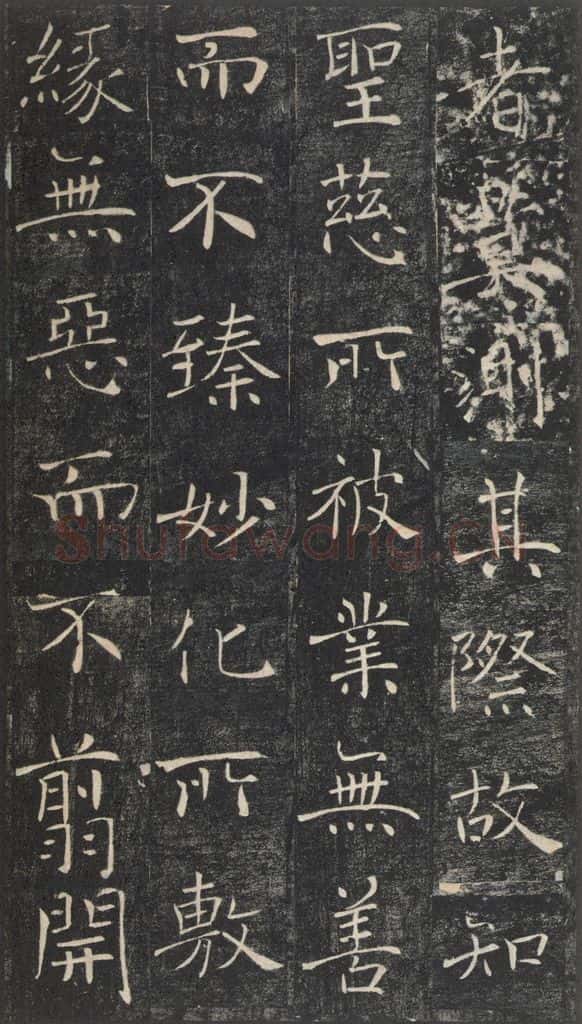 者莫測其際故知
聖慈所被業無善
而不臻妙化所敷
緣無惡而不翦開
Shufawang.CN